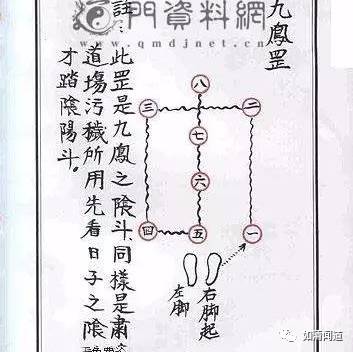 門資料網
www.qmdjnet.cn
九鳳罡
八
三
二
七
六
四
五
一
右脚起
左脚
註：此罡是九鳳之陰斗.同樣是肅
道場污穢所用先看日子之陰
才踏陰陽斗。